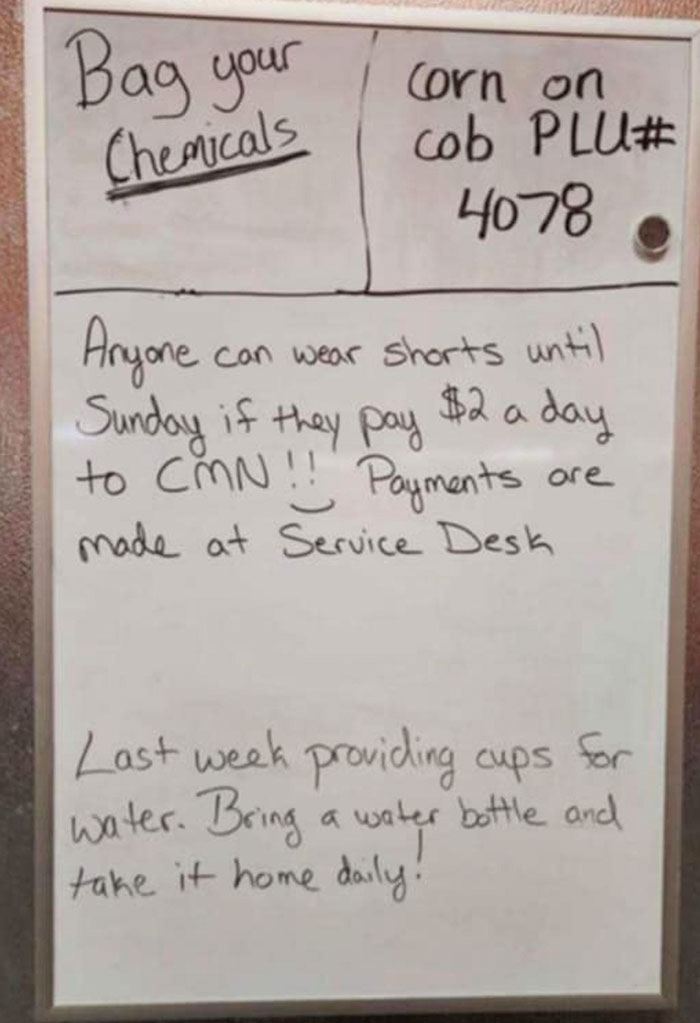 Bag your
Chemicals
corn on
cob PLU#
4078
Anyone can wear shorts until
Sunday if they pay $2 a day
to CMN!! Payments are
made at Service Desk
Last week providing cups for
water. Bring a water bottle and
take it home daily!